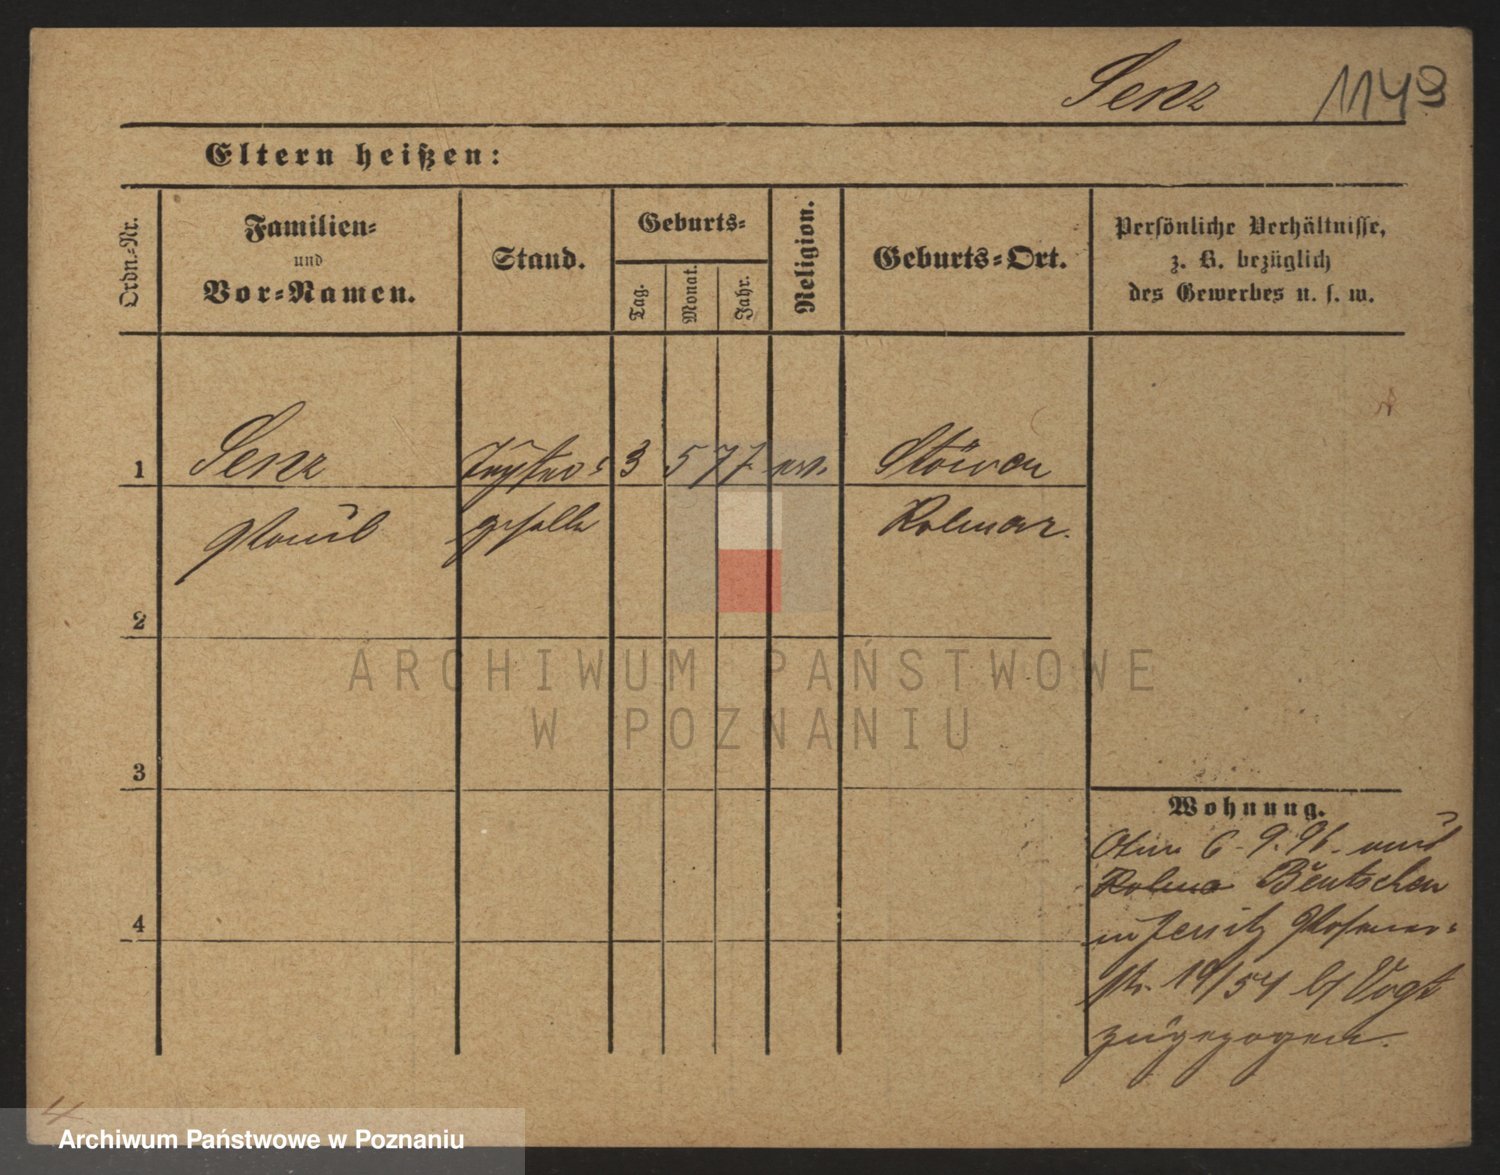 Senz 1149
Eltern heißen:
Ordn.-Nr.
Familien-
und
Vor-Namen.
Stand.
Geburts-
Tag.
Monat.
Jahr.
Religion.
Geburts-Ort.
Persönliche Verhältnisse,
z. B. bezüglich
des Gewerbes u. s. w.
1 Senz 3 5 77 ev. Stöwen
Paul geselle Kolmar.
2
3
4
Wohnung.
Am 6. 9. 96. aus
Kolma Bentschen
in Jersitz Posener-
str. 19/54 b/ Vogt
zugezogen.
ARCHIWUM PAŃSTWOWE
W POZNANIU
4
Archiwum Państwowe w Poznaniu